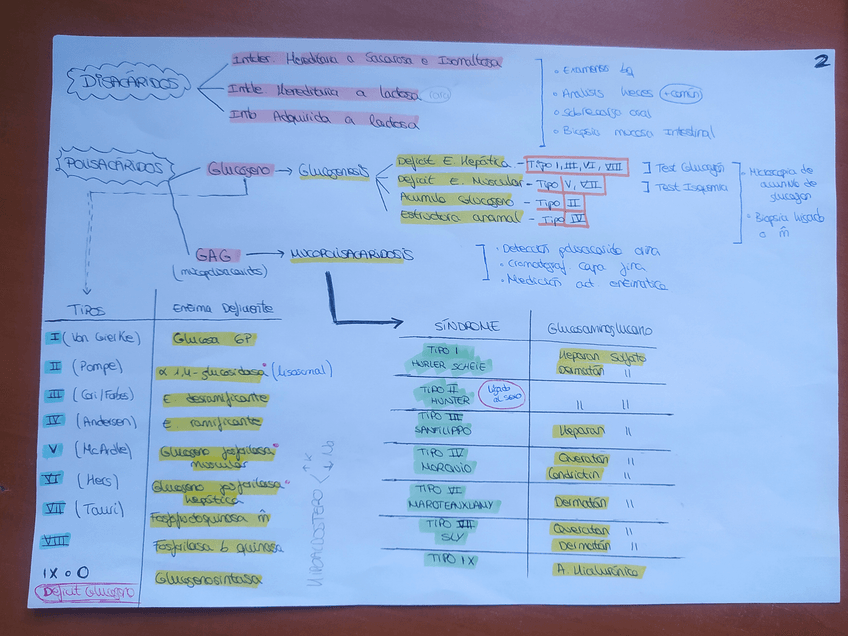 2
DISACÁRIDOS
Intoler. Hereditaria a Sacarosa e Isomaltosa
Intole Hereditaria a lactosa
Into Adquirida a lactosa
• Examenes bq
• Análisis heces (+común)
• Sobrecarga oral
• Biopsia mucosa Intestinal
POLISACÁRIDOS
Glucógeno → Glucogenosis
Deficit E. Hepática - Tipo I, III, VI, VIII
Deficit e. Muscular - Tipo V, VII
Acumulo Glucogeno - Tipo II
Estructura anormal - Tipo IV
] Test Glucagón
] Test Isquemia
• Microscopia de
acumulo de
glucogeno
• Biopsia hígado
o m̂
GAG → MUCOPOLISACARIDOSIS
(mucopolisacáridos)
• Detección polisacarido orina
• Cromatograf. capa fina
• Medición act. enzimatica
TIPOS
Enzima Deficiente
I (Von Gierke)
Glucosa 6P
II (Pompe)
α 1,4-glucosidasa (lisosomal)
III (Cori/Forbes)
E. desramificante
IV (Andersen)
E. ramificante
V (McArdle)
Glucogeno fosforilasa
muscular
VI (Hers)
Glucogeno fosforilasa
hepática
VII (Tauri)
Fosfofructoquinasa m̂
VIII
Fosforilasa b quinasa
IX o 0
Glucogenosintasa
Deficit Glucogeno
↑K
↓Na
SÍNDROME
Glucosaminoglucano
TIPO I
HURLER SCHEIE
Heparan Sulfato
Dermatán "
TIPO II
HUNTER
Ligado
al sexo
" "
TIPO III
SANFILIPPO
Heparan "
TIPO IV
MORQUIO
Queratán "
Condrictin "
TIPO VI
MAROTEAUXLAMY
Dermatán "
TIPO VII
SLY
Queratan "
Dermatán "
TIPO IX
A. Hialurónico